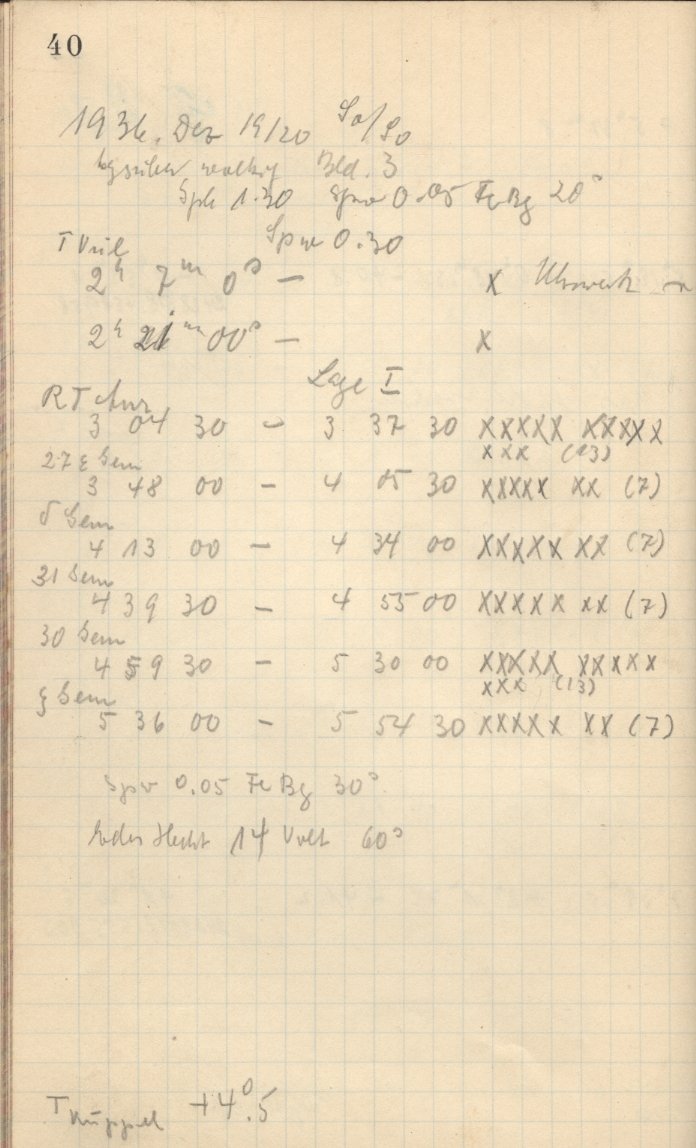 40
1936. Dez 19/20 So/So
tagsüber wolkig Bld. 3
Sph 1.30 Spw 0.05 Fe Bg 20s
T Vul Spw 0.30
2h 7m 0s — x Uhrwerk
2h 21m 00s — x
Lage I
RT Aur
3 04 30 — 3 37 30 xxxxx xxxxx
xxx (13)
27 ε Gem
3 48 00 — 4 05 30 xxxxx xx (7)
δ Gem
4 13 00 — 4 34 00 xxxxx xx (7)
31 Gem
4 39 30 — 4 55 00 xxxxx xx (7)
30 Gem
4 59 30 — 5 30 00 xxxxx xxxxx
xxx (13)
ξ Gem
5 36 00 — 5 54 30 xxxxx xx (7)
Spw 0.05 Fe Bg 30s
14 Volt 60s
T Kuppel +4°.5